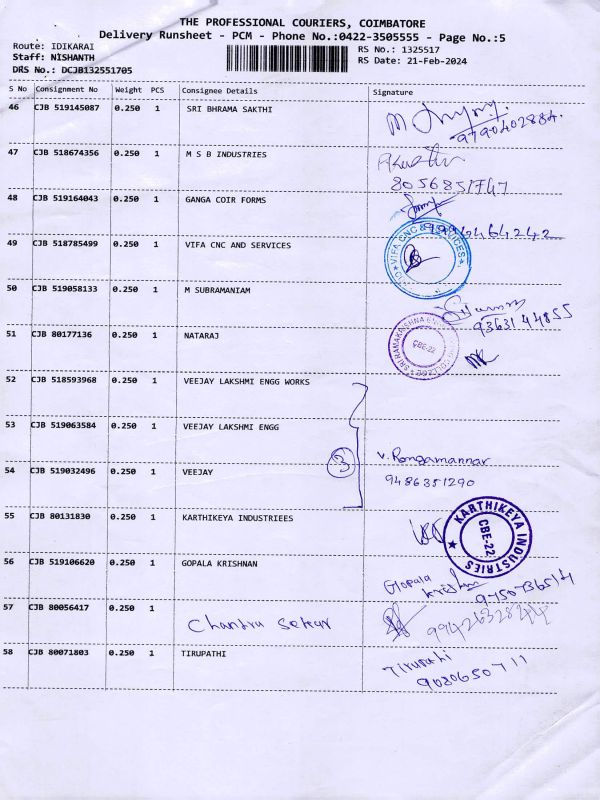 THE PROFESSIONAL COURIERS, COIMBATORE
Delivery Runsheet - PCM - Phone No.:0422-3505555 - Page No.:5
Route: IDIKARAI
Staff: NISHANTH
DRS No.: DCJB132551705
RS No.: 1325517
RS Date: 21-Feb-2024
S No Consignment No Weight PCS Consignee Details Signature
46 CJB 519145087 0.250 1 SRI BHRAMA SAKTHI
9790402884.
47 CJB 518674356 0.250 1 M S B INDUSTRIES
8056851747
48 CJB 519164043 0.250 1 GANGA COIR FORMS
49 CJB 518785499 0.250 1 VIFA CNC AND SERVICES
VIFA CNC & SERVICES
50 CJB 519058133 0.250 1 M SUBRAMANIAM
9363144855
51 CJB 80177136 0.250 1 NATARAJ
SRI RAMAKRISHNA COLLEGE
CBE-22
52 CJB 518593968 0.250 1 VEEJAY LAKSHMI ENGG WORKS
53 CJB 519063584 0.250 1 VEEJAY LAKSHMI ENGG
3
V. Rongamannar
54 CJB 519032496 0.250 1 VEEJAY
9486351290
55 CJB 80131830 0.250 1 KARTHIKEYA INDUSTRIEES
KARTHIKEYA INDUSTRIES
CBE-22
56 CJB 519106620 0.250 1 GOPALA KRISHNAN
Gopala
Krishn
9750736514
57 CJB 80056417 0.250 1 Chandru Sekar
58 CJB 80071803 0.250 1 TIRUPATHI
Tirupathi
9080650711